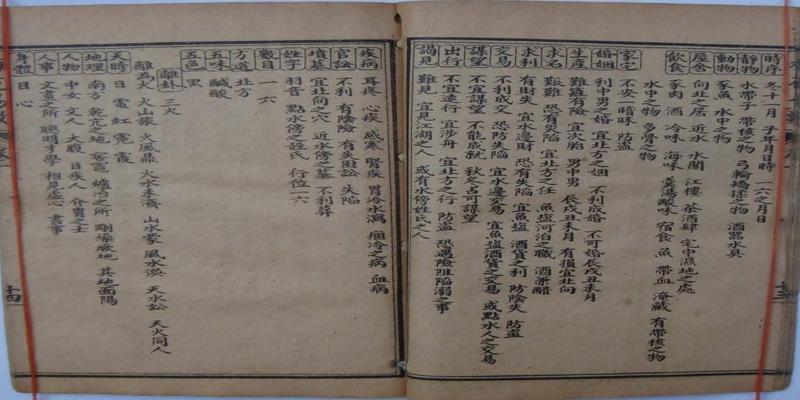 時序 冬十一月 子年月日時 一六之月日
靜物 水帶子 帶核之物 弓輪矯揉之物 酒器水具
動物 豕魚 水中之物
屋舍 向北之居 近水 水閣 江樓 茶酒肆 宅中濕地之處
飲食 豕肉 酒 冷味 海味 羹湯酸味 宿食 魚 帶血 淹藏 有帶核之物
水中之物 多骨之物
家宅 不安 暗昧 防盜
婚姻 利中男之婚 宜北方之姻 不利成婚 不可婚辰戌丑未月
生產 難產有險 宜次胎 男中男 辰戌丑未月 有損宜北向
求名 艱難 恐有災陷 宜北方之任 魚塩河泊之職 酒兼醋
求利 有財失 宜水邊財 恐有失陷 宜魚塩 酒貨之利 防陰失 防盜
交易 不利成交 恐防失陷 宜水邊交易 宜魚塩酒貨之交易 或點水人之交易
謀望 不宜謀望 不能成就 秋冬占可謀望
出行 不宜遠行 宜涉舟 宜北方之行 防盜 恐遇險阻陷溺之事
謁見 難見 宜見江湖之人 或有水傍姓氏之人
疾病 耳疼 心疾 感寒 腎疾 胃冷水瀉 痼冷之病 血病
官訟 不利 有陰險 有失困訟 失陷
墳墓 宜北向之穴 近水傍之墓 不利葬
姓字 羽音 點水傍之姓氏 行位一六
數目 一 六
方道 北方
五味 鹹酸
五色 黑
離卦 三 火
離為火 火山旅 火風鼎 火水未濟 山水蒙 風水渙 天水訟 天火同人
天時 日 電 虹 霓 霞
地理 南方 乾亢之地 窑竈 爐冶之所 剛燥厥地 其地面陽
人物 中女 文人 大腹 目疾人 介冑之士
人事 文書之所 聰明才學 相見虛心 書事
身體 目 心
十四